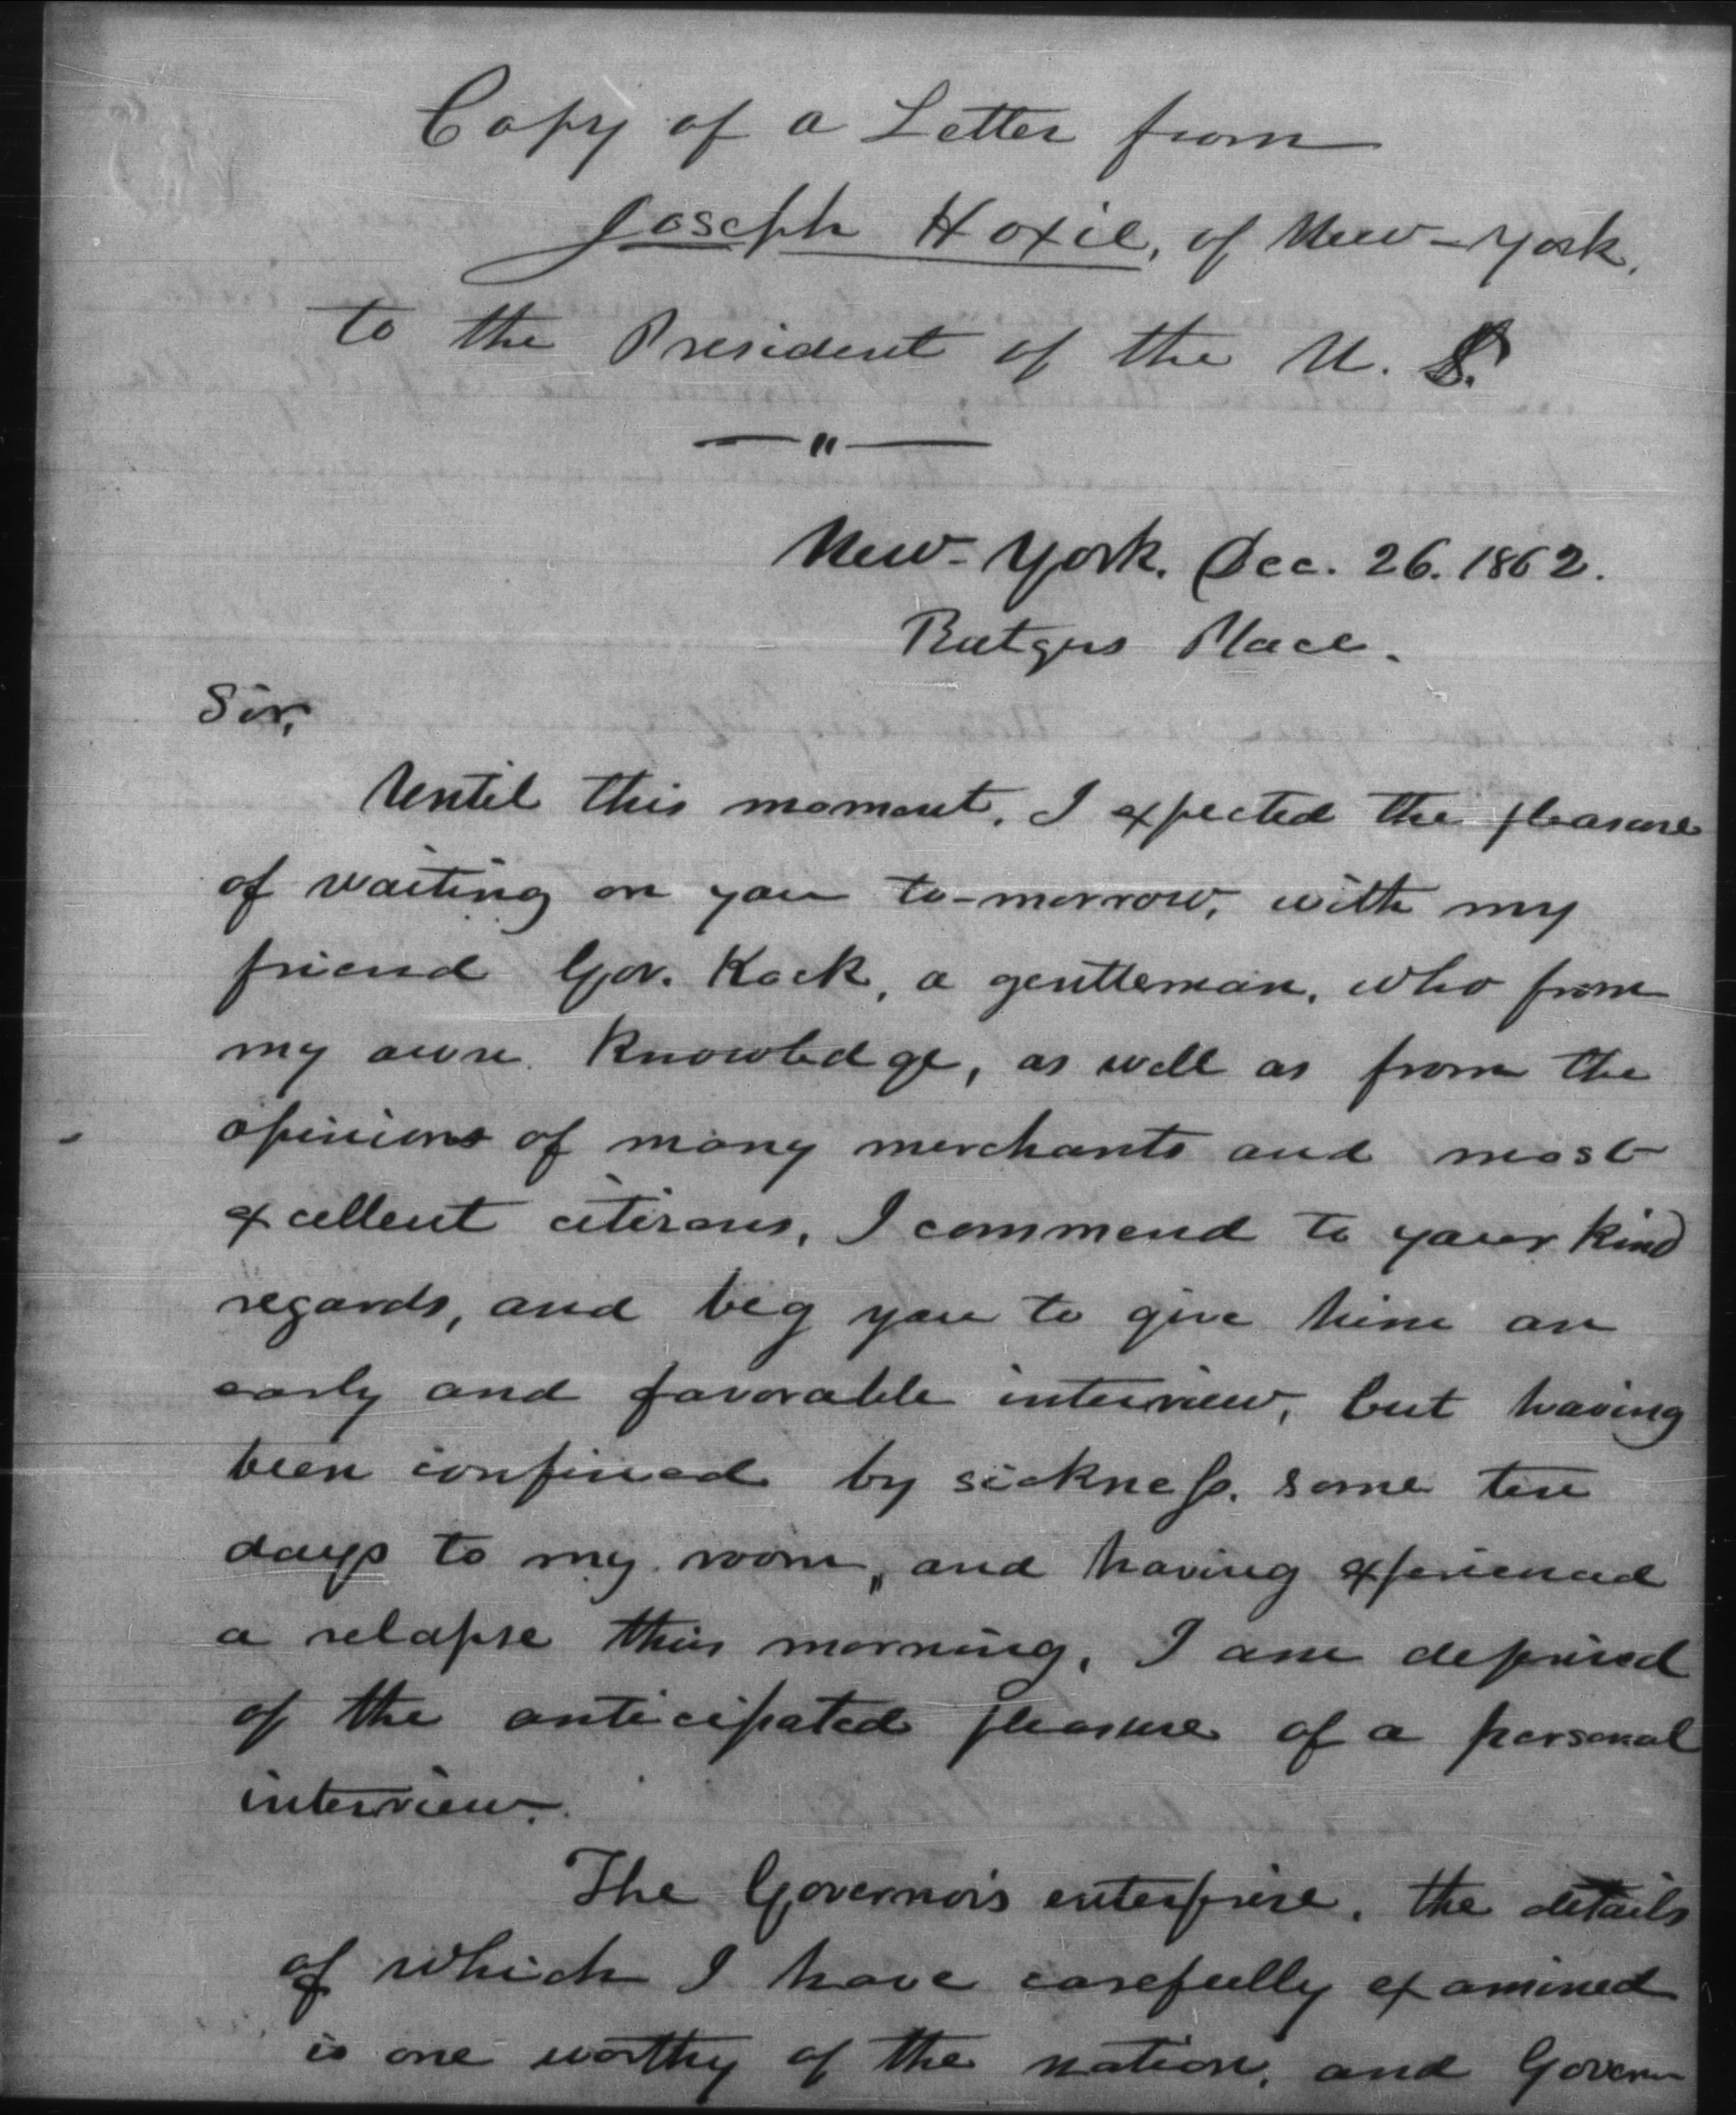 Copy of a Letter from
Joseph Hoxie, of New-York,
to the President of the U. S.
New-York. Dec. 26. 1862.
Rutgers Place.
Sir,
Until this moment, I expected the pleasure
of waiting on you to-morrow, with my
friend Gov. Kock, a gentleman, who from
my own knowledge, as well as from the
opinions of many merchants and most
excellent citizens, I commend to your kind
regards, and beg you to give him an
early and favorable interview, but having
been confined by sickness some ten
days to my room, and having experienced
a relapse this morning, I am deprived
of the anticipated pleasure of a personal
interview.
The Governor's enterprise, the details
of which I have carefully examined
is one worthy of the nation, and Govern